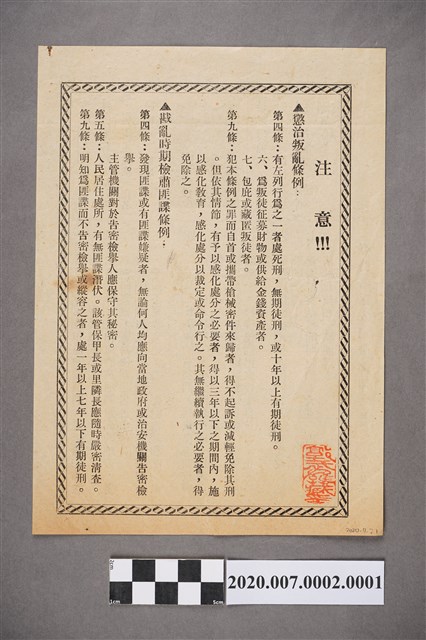 注意!!!
▲懲治叛亂條例:
第四條:有左列行為之一者處死刑,無期徒刑,或十年以上有期徒刑。
六、為叛徒征募財物或供給金錢資產者。
七、包庇或藏匿叛徒者。
第九條:犯本條例之罪而自首或攜帶槍械密件來歸者,得不起訴或減輕免除其刑
。但依其情節,有予以感化處分之必要者,得以三年以下之期間內,施
以感化教育,感化處分以裁定或命令行之。其無繼續執行之必要者,得
免除之。
▲戡亂時期檢肅匪諜條例:
第四條:發現匪諜或有匪諜嫌疑者,無論何人均應向當地政府或治安機關告密檢
舉。
主管機關對於告密檢舉人應保守其秘密。
第五條:人民居住處所,有無匪諜潛伏。該管保甲長或里隣長應隨時嚴密清查。
第九條:明知為匪諜而不告密檢舉或縱容之者,處一年以上七年以下有期徒刑。
1cm
5cm
2020.007.0002.0001